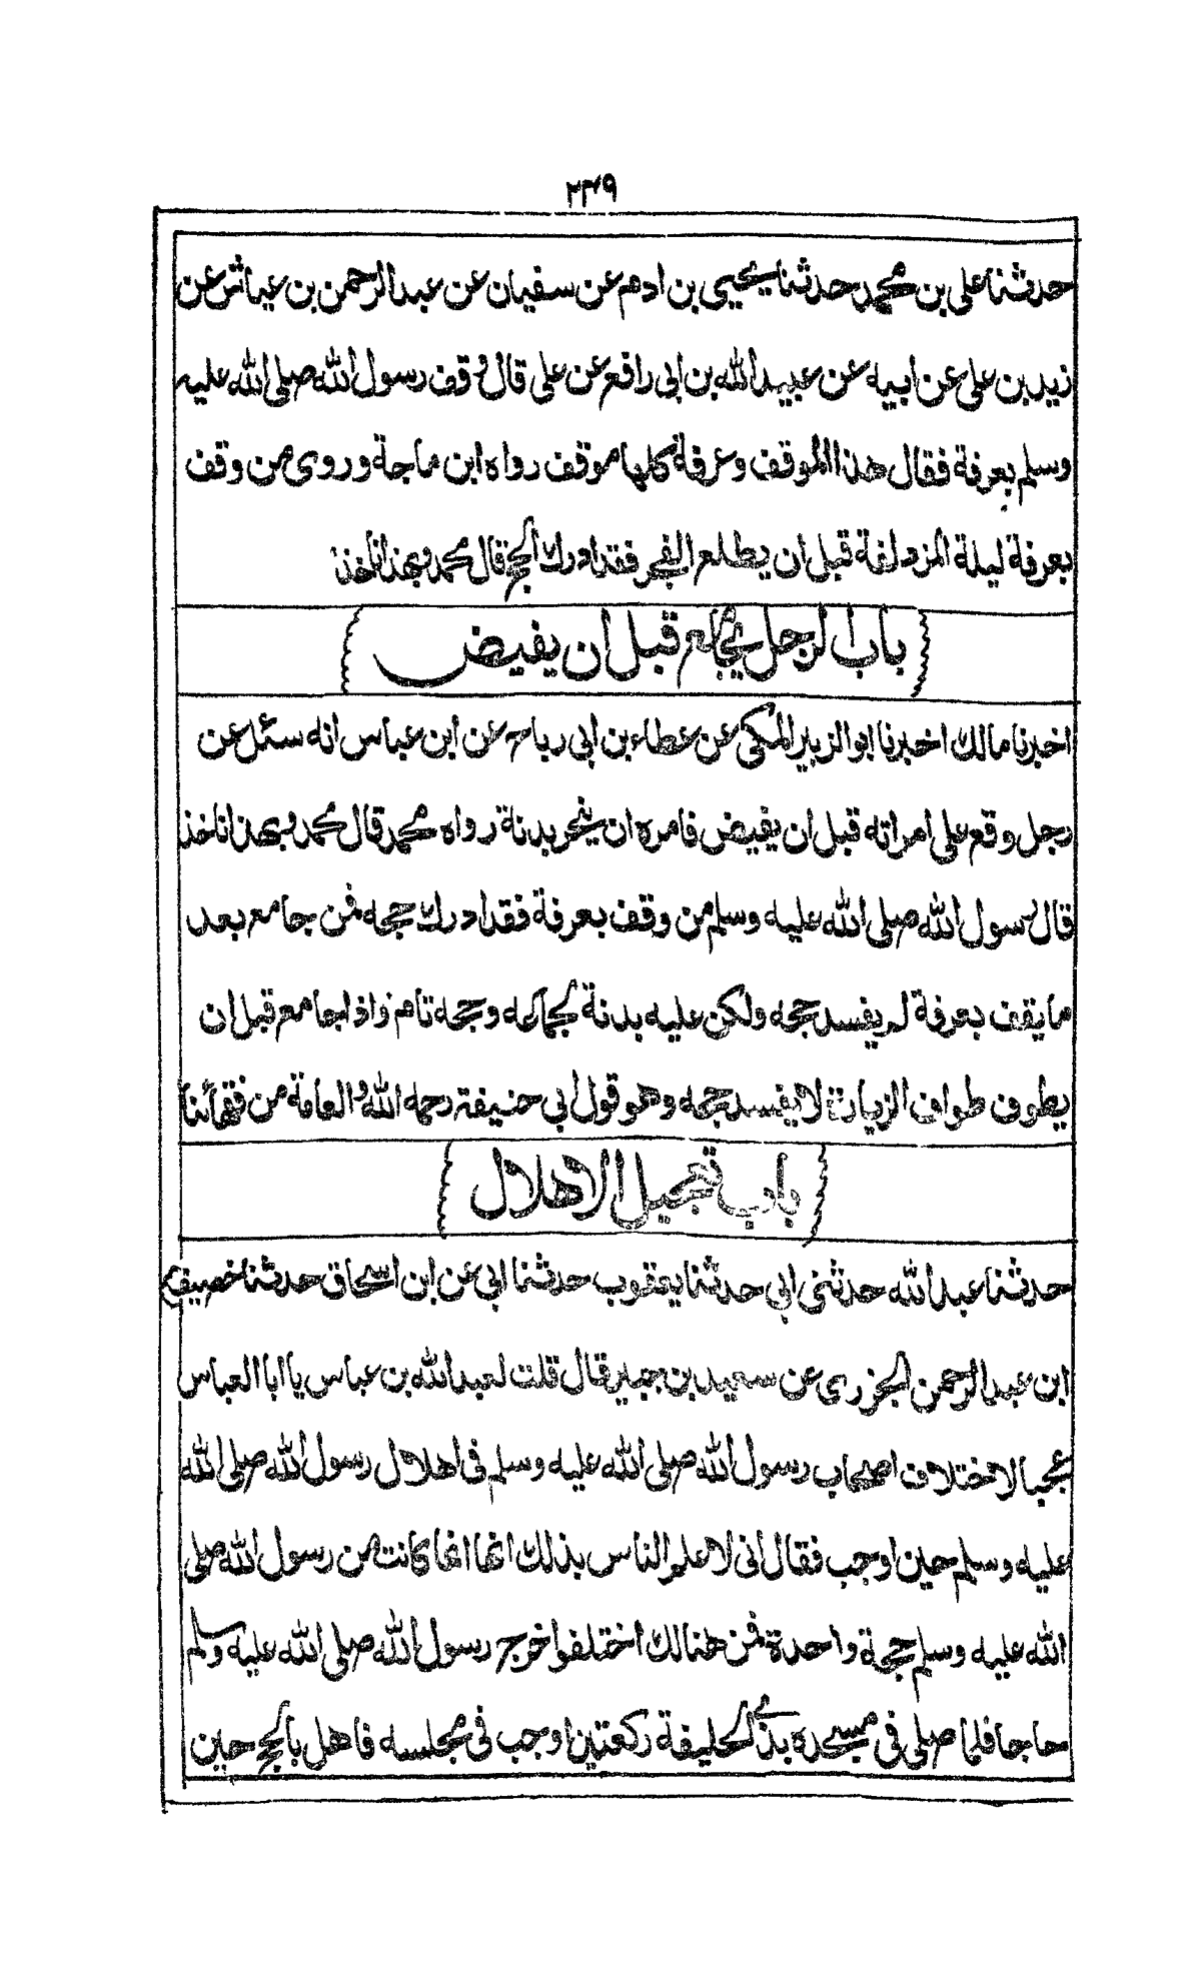 ٢٣٩
حدثنا علی بن محمد حدثنا یحیی بن ادم عن سفیان عن عبد الرحمن بن عیاش عن
زید بن علی عن ابیه عن عبید الله بن ابی رافع عن علی قال وقف رسول الله صلی الله علیه
وسلم بعرفة فقال هذا الموقف وعرفة کلها موقف رواه ابن ماجة وروی من وقف
بعرفة لیلة المزدلفة قبل ان یطلع الفجر فقد ادرك الحج قال محمد وبهذا ناخذ
باب الرجل یجامع قبل ان یفیض
اخبرنا مالك اخبرنا ابو الزبیر المکی عن عطاء بن ابی رباح عن ابن عباس انه سئل عن
رجل وقع علی امراته قبل ان یفیض فامره ان ینحر بدنة رواه محمد قال محمد وبهذا ناخذ
قال رسول الله صلی الله علیه وسلم من وقف بعرفة فقد ادرك حجه فمن جامع بعد
ما یقف بعرفة لم یفسد حجه ولکن علیه بدنة لجماعه وحجه تام واذا جامع قبل ان
یطوف طواف الزیارة لا یفسد حجه وهو قول ابی حنیفة رحمه الله والعامة من فقهائنا
باب تعجیل الاهلال
حدثنا عبد الله حدثنی ابی حدثنا یعقوب حدثنا ابی عن ابن اسحاق حدثنا خصیف
ابن عبد الرحمن الجزری عن سعید بن جبیر قال قلت لعبد الله بن عباس یا ابا العباس
عجبا لاختلاف اصحاب رسول الله صلی الله علیه وسلم فی اهلال رسول الله صلی الله
علیه وسلم حین اوجب فقال انی لاعلم الناس بذلك انها انما کانت من رسول الله صلی
الله علیه وسلم حجة واحدة فمن هنالك اختلفوا خرج رسول الله صلی الله علیه وسلم
حاجا فلما صلی فی مسجده بذی الحلیفة رکعتین اوجب فی مجلسه فاهل بالحج حین